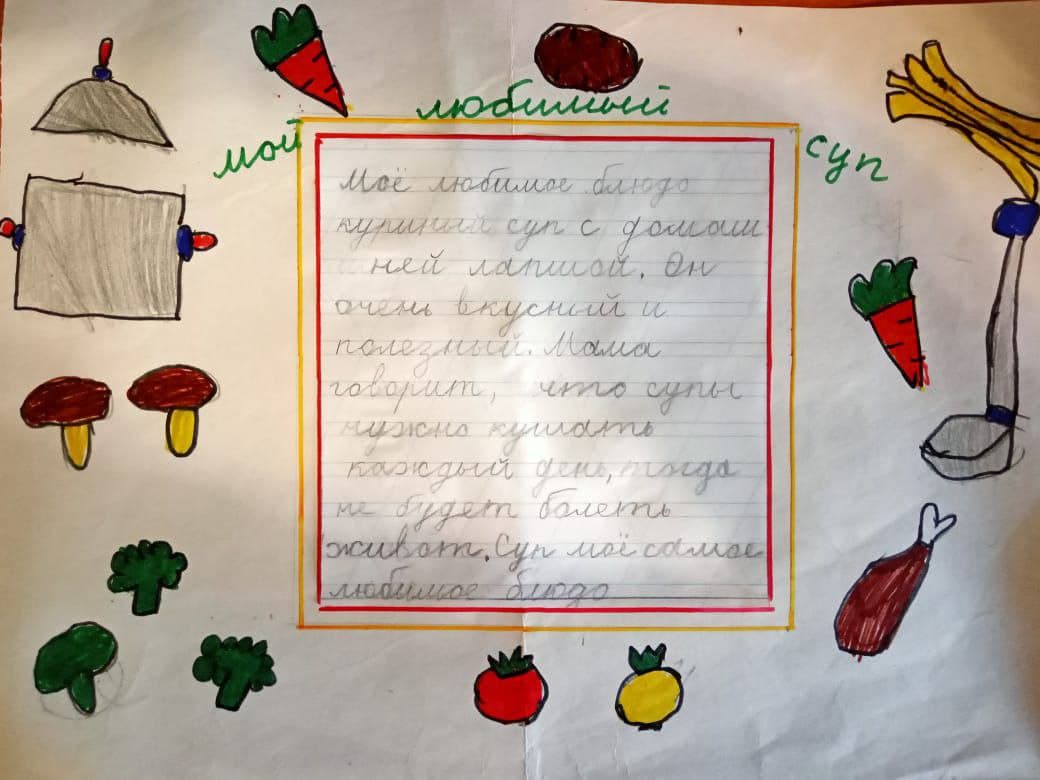 мой любимый суп
Моё любимое блюдо
куриный суп с домаш
ней лапшой. Он
очень вкусный и
полезный. Мама
говорит, что супы
нужно кушать
каждый день, тогда
не будет болеть
живот. Суп моё самое
любимое блюдо